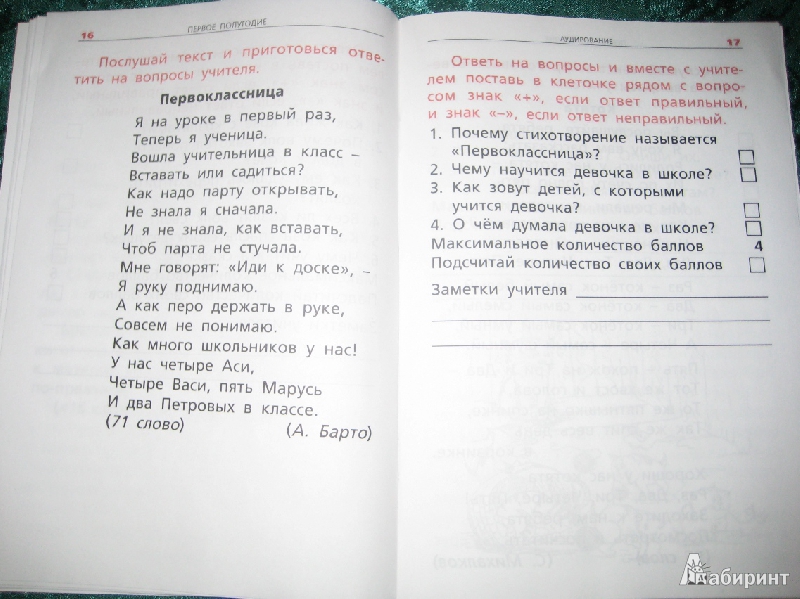 16
ПЕРВОЕ ПОЛУГОДИЕ
Послушай текст и приготовься отве-
тить на вопросы учителя.
Первоклассница
Я на уроке в первый раз,
Теперь я ученица.
Вошла учительница в класс –
Вставать или садиться?
Как надо парту открывать,
Не знала я сначала.
И я не знала, как вставать,
Чтоб парта не стучала.
Мне говорят: «Иди к доске», –
Я руку поднимаю.
А как перо держать в руке,
Совсем не понимаю.
Как много школьников у нас!
У нас четыре Аси,
Четыре Васи, пять Марусь
И два Петровых в классе.
(71 слово) (А. Барто)
АУДИРОВАНИЕ
17
Ответь на вопросы и вместе с учите-
лем поставь в клеточке рядом с вопро-
сом знак «+», если ответ правильный,
и знак «–», если ответ неправильный.
1. Почему стихотворение называется
«Первоклассница»?
2. Чему научится девочка в школе?
3. Как зовут детей, с которыми
учится девочка?
4. О чём думала девочка в школе?
Максимальное количество баллов 4
Подсчитай количество своих баллов
Заметки учителя
Лабиринт